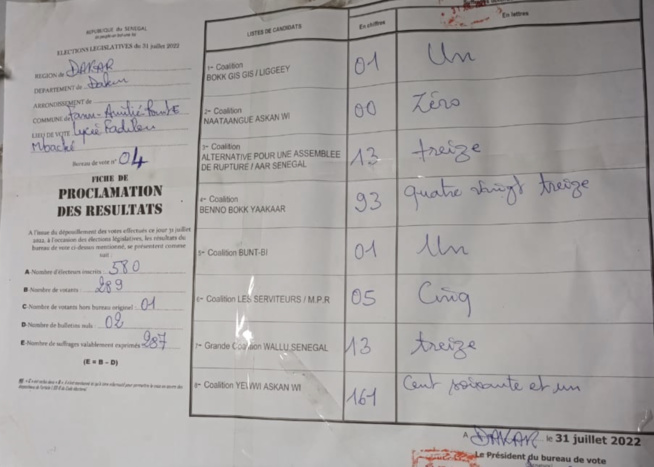 REPUBLIQUE du SENEGAL
ELECTIONS LEGISLATIVES du 31 juillet 2022
REGION de DAKAR
DEPARTEMENT de Dakar
ARRONDISSEMENT de
COMMUNE de Fann-Amitié-Point E
LIEU DE VOTE Lycée Fadilou
Mbacké
Bureau de vote n° 04
FICHE DE
PROCLAMATION
DES RESULTATS
A l'issue du dépouillement des votes effectués ce jour 31 juillet
2022, à l'occasion des élections législatives, les résultats du
bureau de vote ci dessus mentionné, se présentent comme
suit :
A-Nombre d'électeurs inscrits : 580
B-Nombre de votants : 289
C-Nombre de votants hors bureau originel : 01
D-Nombre de bulletins nuls : 02
E-Nombre de suffrages valablement exprimés 287
(E = B – D)
LISTES DE CANDIDATS En chiffres En lettres
1- Coalition
BOKK GIS GIS / LIGGEEY 01 Un
2- Coalition
NAATAANGUE ASKAN WI 00 Zéro
3- Coalition
ALTERNATIVE POUR UNE ASSEMBLEE
DE RUPTURE / AAR SENEGAL 13 treize
4- Coalition
BENNO BOKK YAAKAAR 93 quatre vingt treize
5- Coalition BUNT-BI 01 Un
6- Coalition LES SERVITEURS / M.P.R 05 Cinq
7- Grande Coalition WALLU SENEGAL 13 treize
8- Coalition YEWWI ASKAN WI 161 Cent soixante et un
A DAKAR le 31 juillet 2022
Le Président du bureau de vote